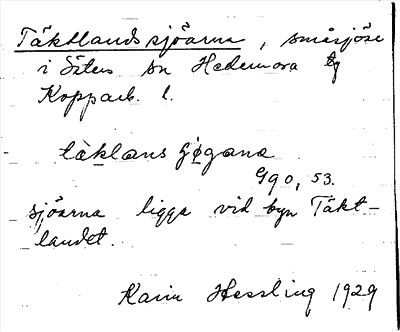 Täktlandssjöarna, småsjöar
i Säters sn Hedemora tg
Kopparb. l.
tàklans
990, 53.
sjöarna ligga vid byn Täkt-
landet.
Karin Hessling 1929